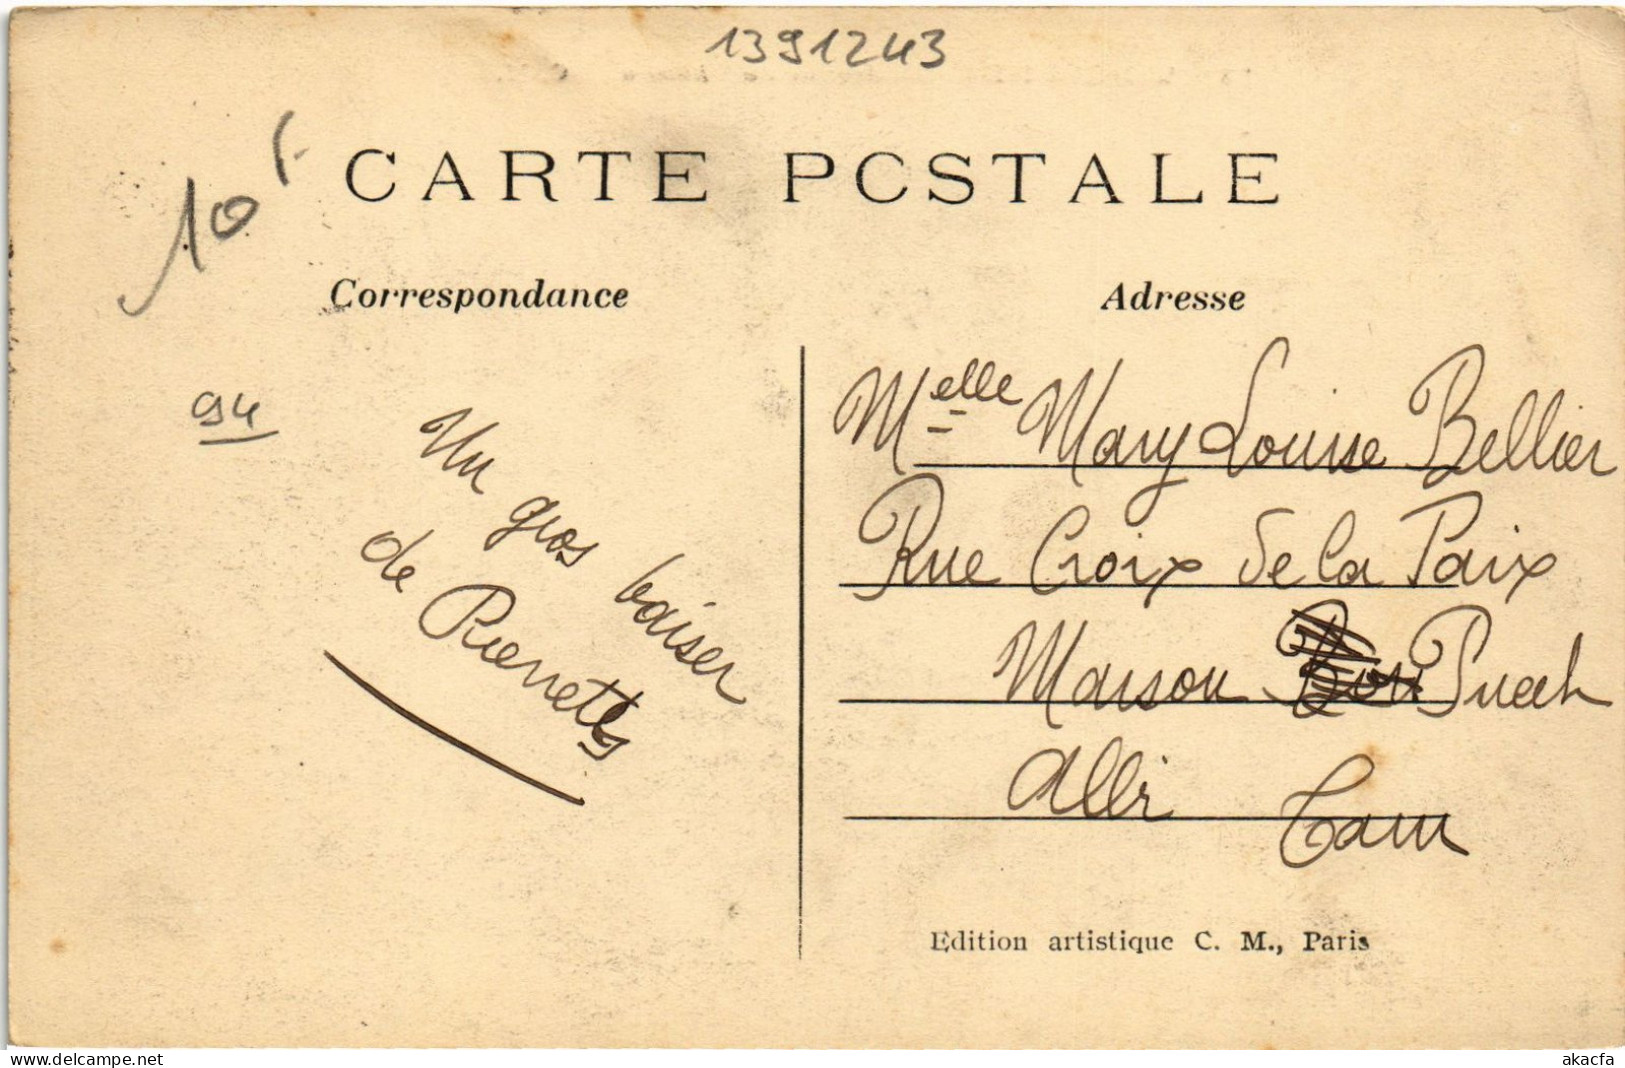 1391243
10 F
CARTE POSTALE
Correspondance
Adresse
94
Un gros baiser
de Pierrette
Melle Mary Louise Bellier
Rue Croix de la Paix
Maison Puech
Albi Tarn
Edition artistique C. M., Paris
www.delcampe.net
akacfa